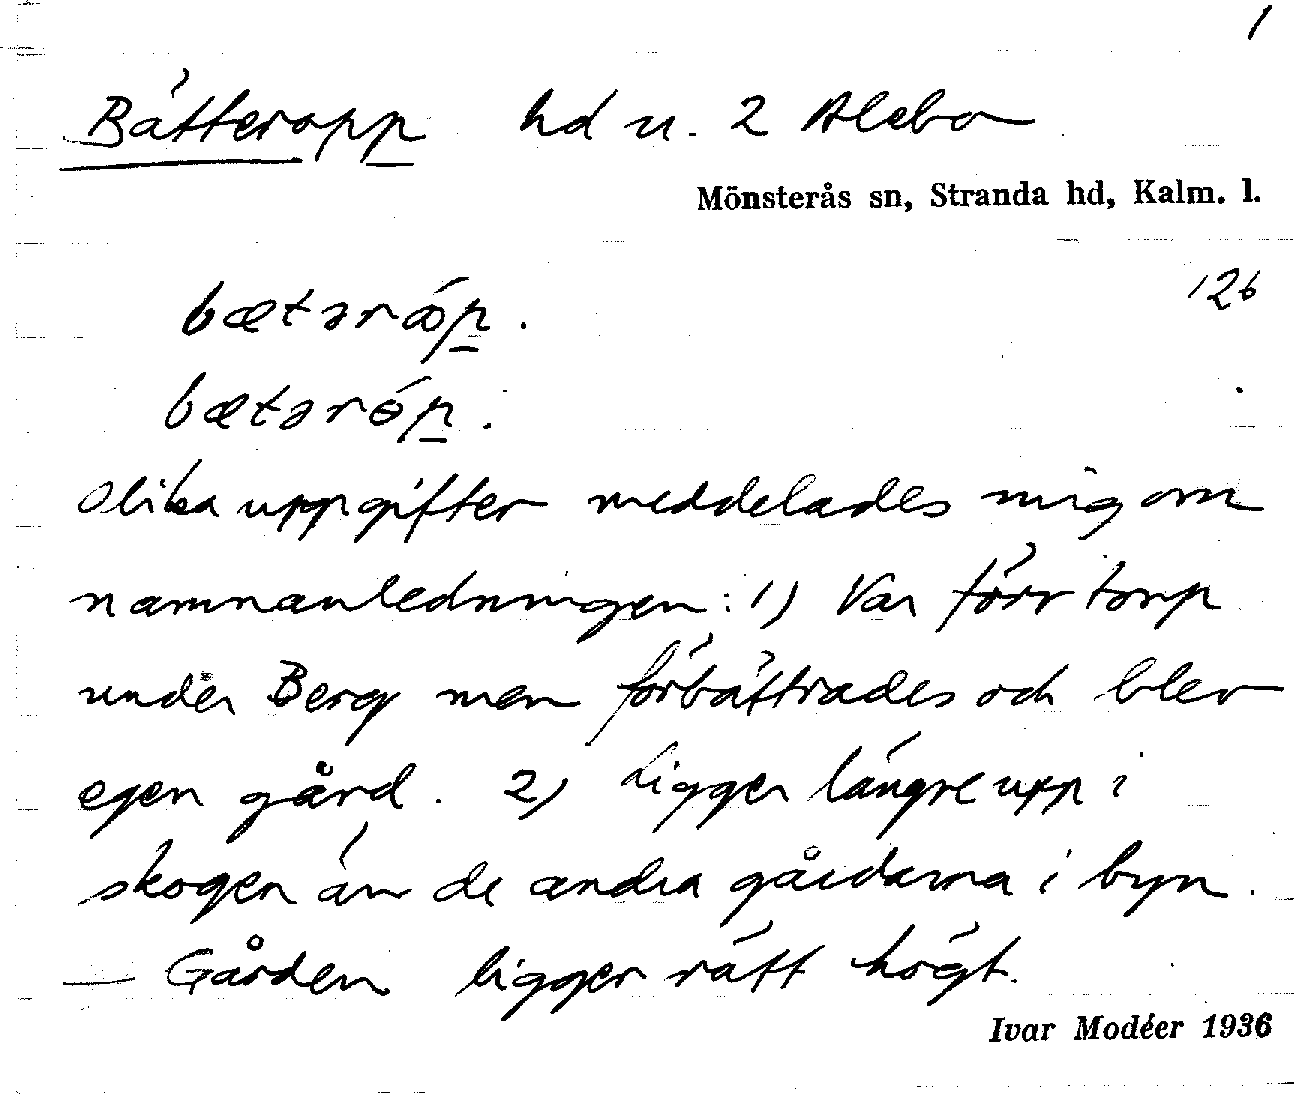 1
Bätteropp hd u. 2 Alebo
Mönsterås sn, Stranda hd, Kalm. l.
126
bætərǿp.
bætərɵ́p.
Olika uppgifter meddelades mig om
namnanledningen: 1) Var förr torp
under Berg men förbättrades och blev
egen gård. 2) Ligger längre upp i
skogen än de andra gårdarna i byn.
— Gården ligger rätt högt.
Ivar Modéer 1936